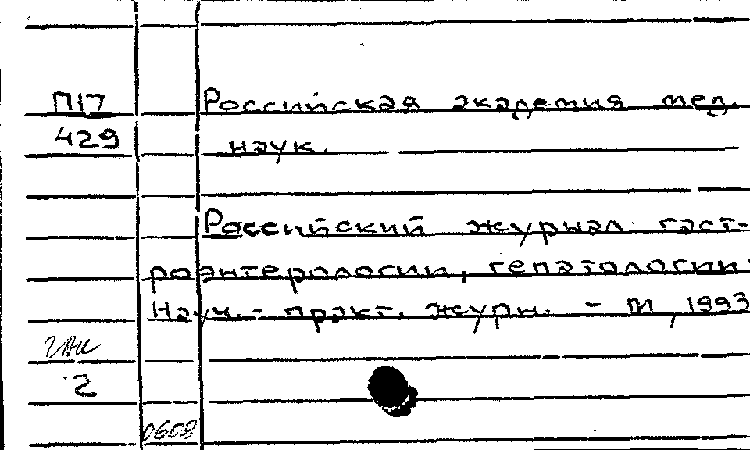 П17 Российская академия мед.
429 наук.
Российский журнал гаст-
роэнтерологии, гепатологии:
Науч.- практ. журн. - М, 1993
2
0608